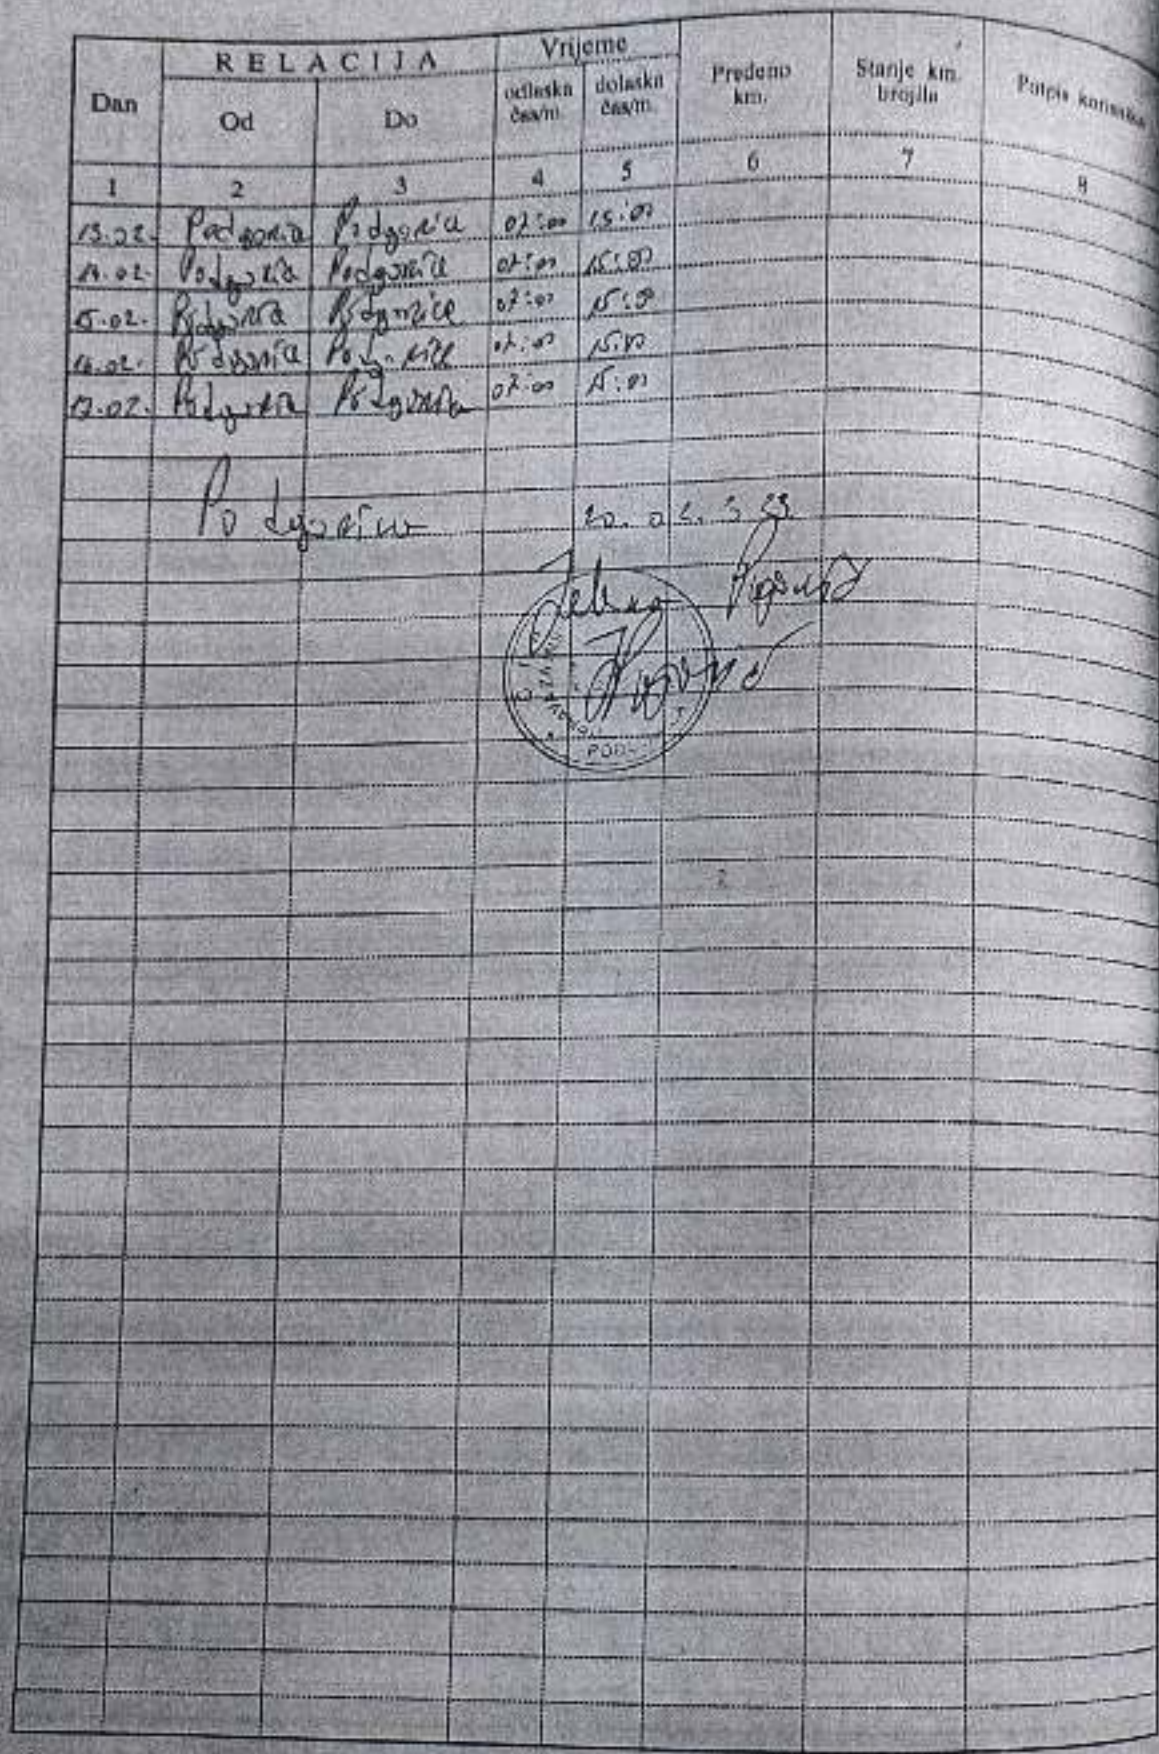 RELACIJA Vrijeme
Dan Od Do odlaska čas/m. dolaska čas/m. Pređeno km. Stanje km. brojila Potpis korisnika
1 2 3 4 5 6 7 8
13.02. Podgorica Podgorica 07:00 15:00
14.02. Podgorica Podgorica 07:00 15:00
15.02. Podgorica Podgorica 07:00 15:00
16.02. Podgorica Podgorica 07:00 15:00
17.02. Podgorica Podgorica 07:00 15:00
Podgorica 20.02.